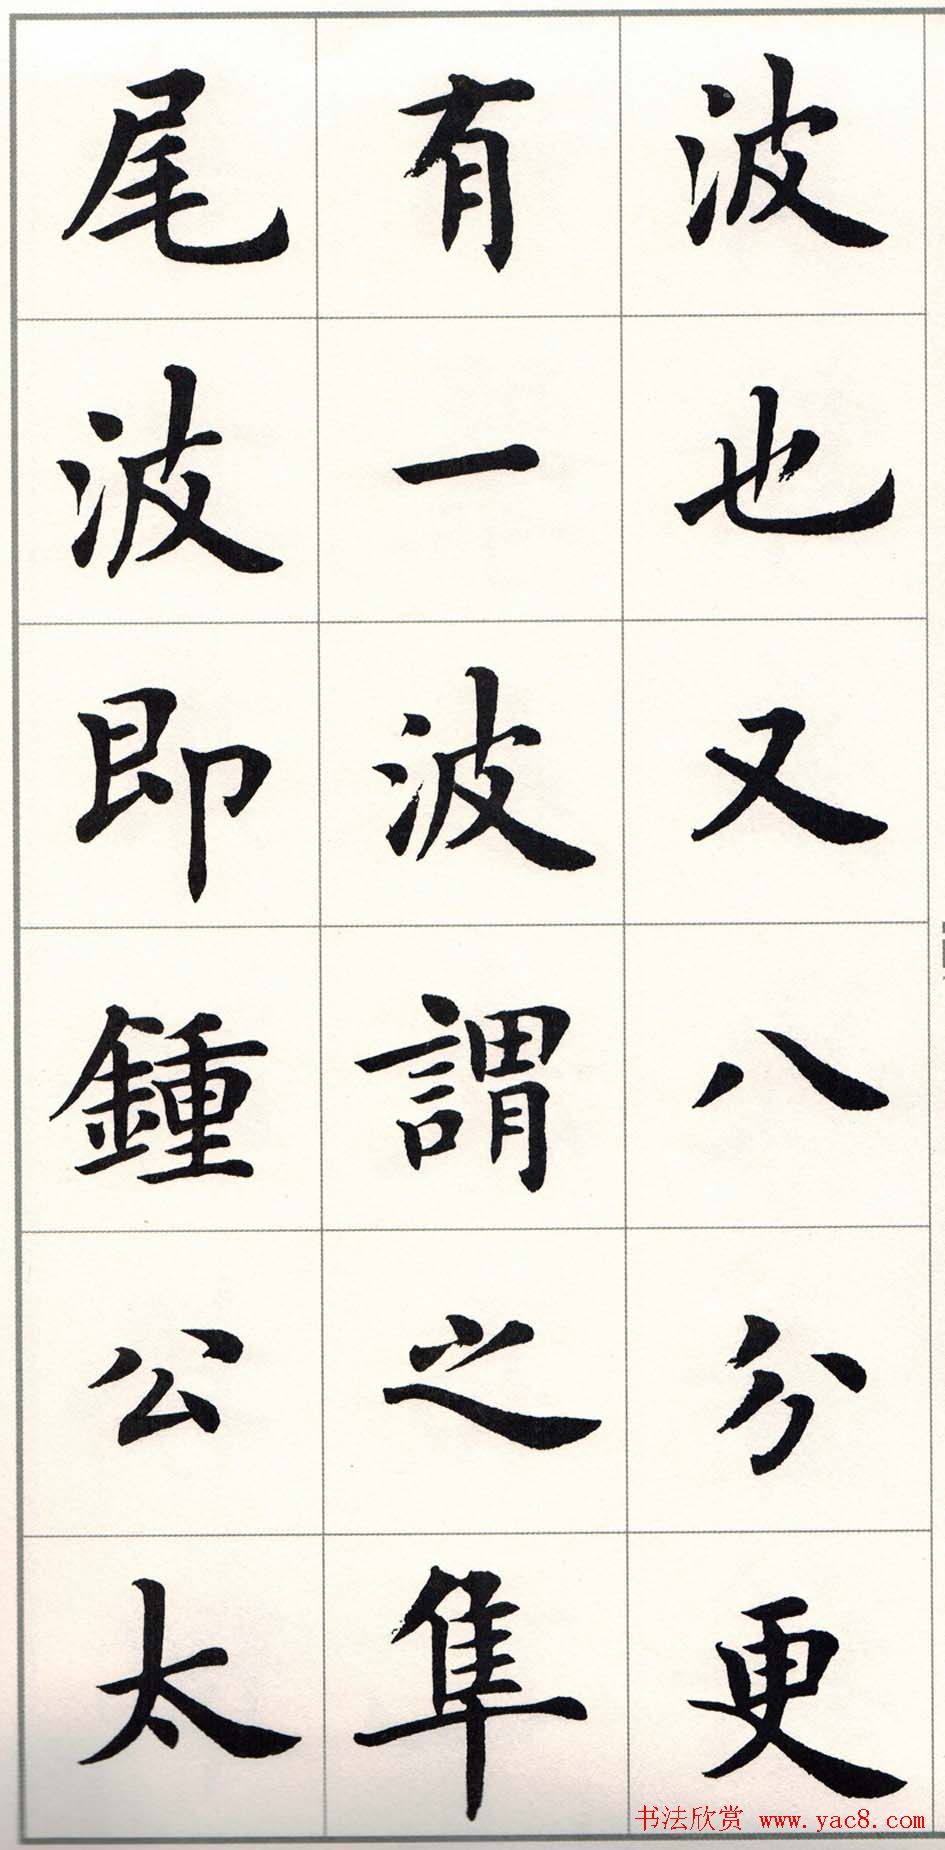 波也又八分更
有一波謂之隼
尾波即鍾公太
书法欣赏 www.yac8.com